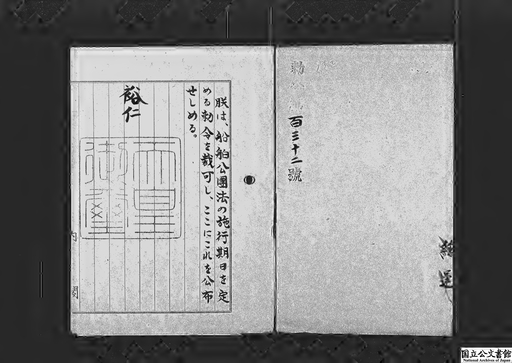 勅令第百三十二號
朕は、船舶公團法の施行期日を定
める勅令を裁可し、ここにこれを公布
せしめる。
裕仁
天皇
御璽
内閣
国立公文書館
National Archives of Japan